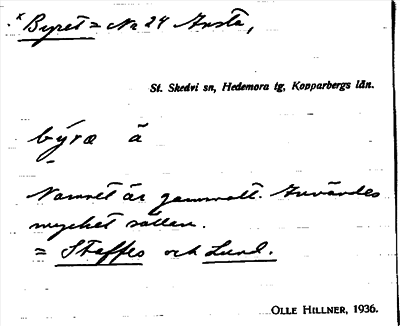 x Byret = No 24 Arsta,
St. Skedvi sn, Hedemora tg, Kopparbergs län.
býræ ä
Namnet är gammalt. Användes
mycket sällan.
= Staffes och Lund.
OLLE HILLNER, 1936.